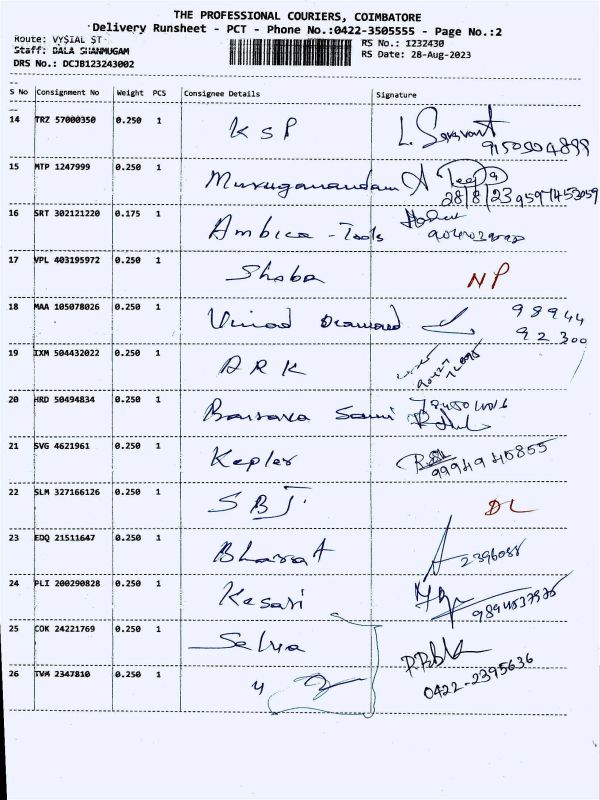 THE PROFESSIONAL COURIERS, COIMBATORE
Delivery Runsheet - PCT - Phone No.:0422-3505555 - Page No.:2
Route: VYSIAL ST
RS No.: 1232430
Staff: BALA SHANMUGAM
RS Date: 28-Aug-2023
DRS No.: DCJB123243002
S No Consignment No Weight PCS Consignee Details Signature
14 TRZ 57000350 0.250 1 KSP L. Saravant
9150504899
15 MTP 1247999 0.250 1 Muruganandam A
28/8/23 9597453059
16 SRT 302121220 0.175 1 Ambica - Tools
17 VPL 403195972 0.250 1 Shoba NP
18 MAA 105078026 0.250 1 Vinod Diamond 98944
92300
19 IXM 504432022 0.250 1 ARK
20 HRD 50494834 0.250 1 Sami
21 SVG 4621961 0.250 1 Kepler
9994940855
22 SLM 327166126 0.250 1 SBI DL
23 EDQ 21511647 0.250 1 Bharat
24 PLI 200290828 0.250 1 Kesari
25 COK 24221769 0.250 1 Selva
26 TVM 2347810 0.250 1 "
0422-2395636